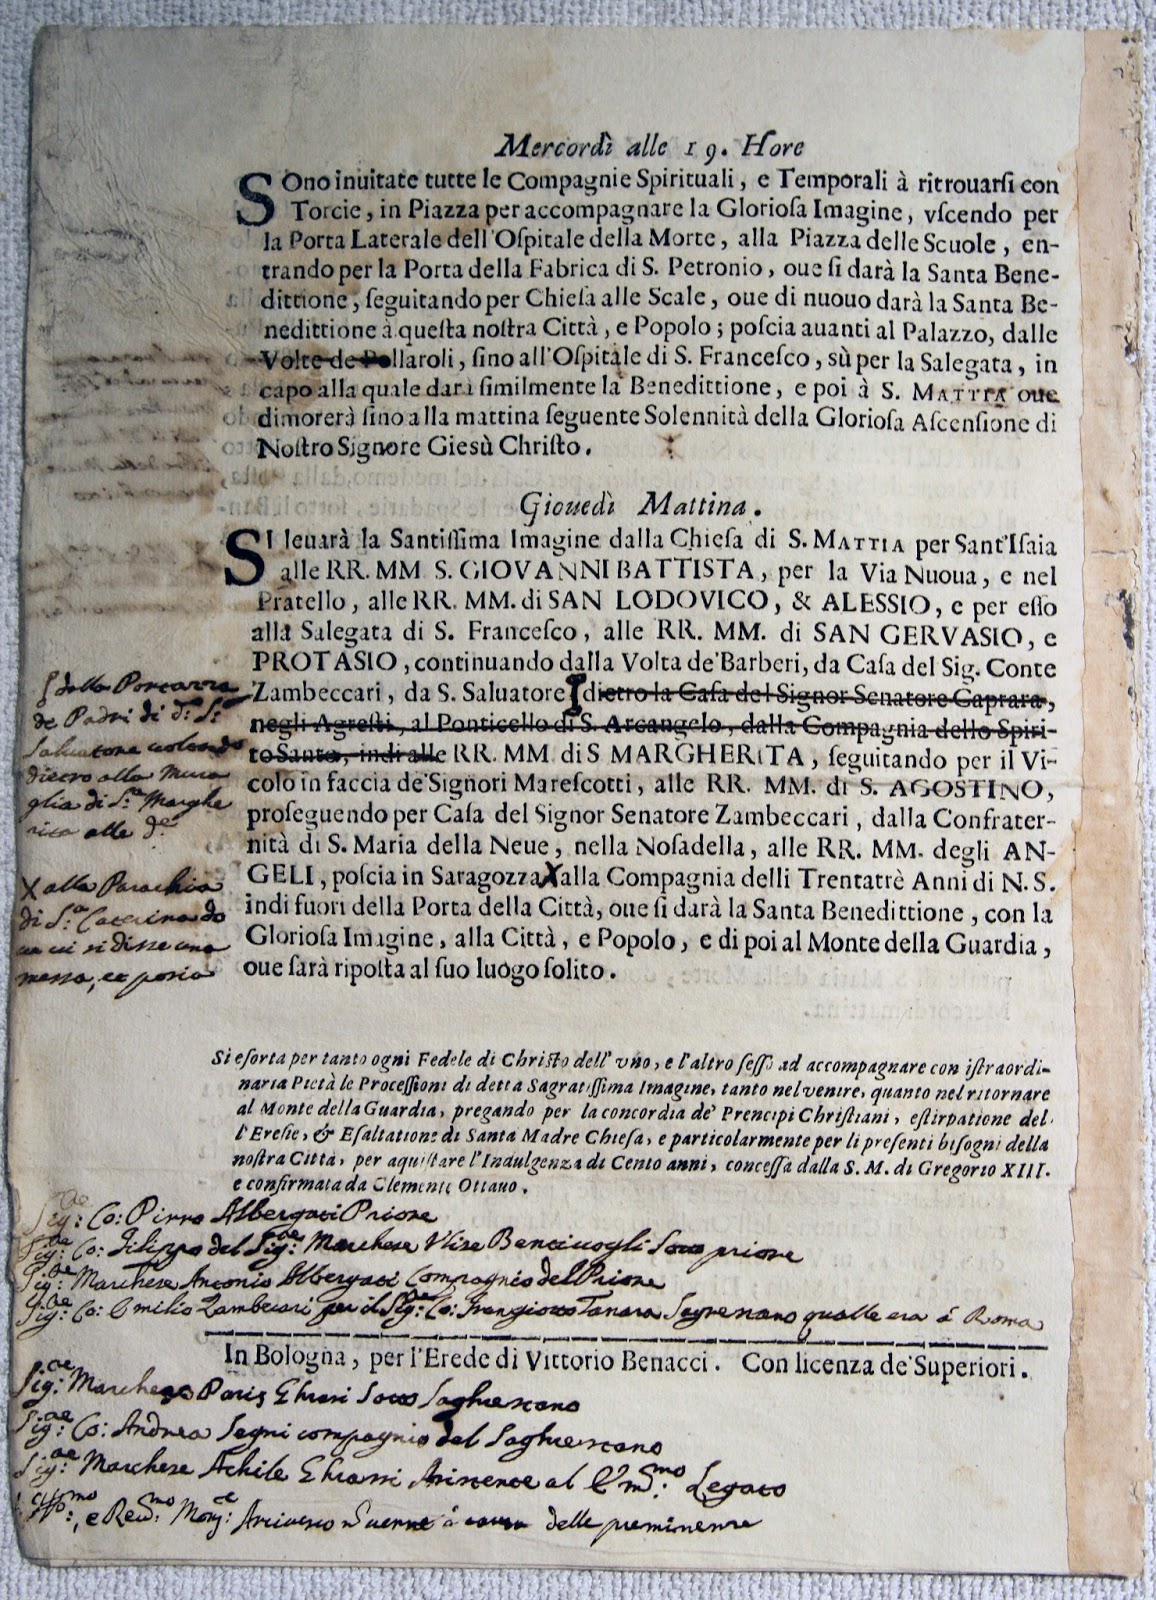 Mercordì alle 19. Hore
SOno inuitate tutte le Compagnie Spirituali, e Temporali à ritrouarſi con
Torcie, in Piazza per accompagnare la Glorioſa Imagine, vſcendo per
la Porta Laterale dell'Oſpitale della Morte, alla Piazza delle Scuole, en-
trando per la Porta della Fabrica di S. Petronio, oue ſi darà la Santa Bene-
dittione, ſeguitando per Chieſa alle Scale, oue di nuouo darà la Santa Be-
nedittione à queſta noſtra Città, e Popolo; poſcia auanti al Palazzo, dalle
Volte de Pollaroli, ſino all'Oſpitale di S. Franceſco, sù per la Salegata, in
capo alla quale darà ſimilmente la Benedittione, e poi à S. MATTIA oue
dimorerà ſino alla mattina ſeguente Solennità della Glorioſa Aſcenſione di
Noſtro Signore Gieſù Chriſto.
Giouedì Mattina.
SI leuarà la Santiſſima Imagine dalla Chieſa di S. MATTIA per Sant'Iſaia
alle RR. MM S. GIOVANNI BATTISTA, per la Via Nuoua, e nel
Pratello, alle RR. MM. di SAN LODOVICO, & ALESSIO, e per eſſo
alla Salegata di S. Franceſco, alle RR. MM. di SAN GERVASIO, e
PROTASIO, continuando dalla Volta de'Barberi, da Caſa del Sig. Conte
Zambeccari, da S. Saluatore dietro la Caſa del Signor Senatore Caprara,
negli Agreſti, al Ponticello di S. Arcangelo, dalla Compagnia dello Spiri-
to Santo, indi alle RR. MM di S MARGHERITA, ſeguitando per il Vi-
colo in faccia de'Signori Mareſcotti, alle RR. MM. di S. AGOSTINO,
proſeguendo per Caſa del Signor Senatore Zambeccari, dalla Confrater-
nità di S. Maria della Neue, nella Noſadella, alle RR. MM. degli AN-
GELI, poſcia in Saragozza X alla Compagnia delli Trentatrè Anni di N. S.
indi fuori della Porta della Città, oue ſi darà la Santa Benedittione, con la
Glorioſa Imagine, alla Città, e Popolo, e di poi al Monte della Guardia,
oue ſarà ripoſta al ſuo luogo ſolito.
dalla Porcaria
de Padri di d.º S.
Salvatore voltando
dietro alla Mura
glia di S.ta Marghe
rita alle d.e
X alla Parochia
di S.ta Caterina do
ve vi si disse una
messa, et poscia
Si eſorta per tanto ogni Fedele di Chriſto dell'vno, e l'altro ſeſſo ad accompagnare con iſtraordi-
naria Pietà le Proceſſioni di detta Sagratiſſima Imagine, tanto nel venire, quanto nel ritornare
al Monte della Guardia, pregando per la concordia de' Prencipi Chriſtiani, eſtirpatione del-
l'Ereſie, & Eſaltatione di Santa Madre Chieſa, e particolarmente per li preſenti biſogni della
noſtra Città, per aquiſtare l'Indulgenza di Cento anni, conceſſa dalla S. M. di Gregorio XIII.
e confirmata da Clemente Ottauo.
Sig:re Co: Pirro Albergati Priore
Sig:re Co: Filippo del Sig:re Marchese Ulise Bentivogli Soto priore
Sig:re Marchese Antonio Albergati Compagnio del Priore
Sig:re Co: Emilio Zambecari per il Sig:re Co: Frangiotto Tanara Segrestano qualle era á Roma
In Bologna, per l'Erede di Vittorio Benacci. Con licenza de'Superiori.
Sig:re Marchese Paris Ghisi Soto Saghrestano
Sig:re Co: Andrea Segni compagnio del Saghrestano
Sig:re Marchese Achile Ghrassi Asistente al Em:mo Legato
e Rev:mo Mons:r Arcivesco delle preminenze